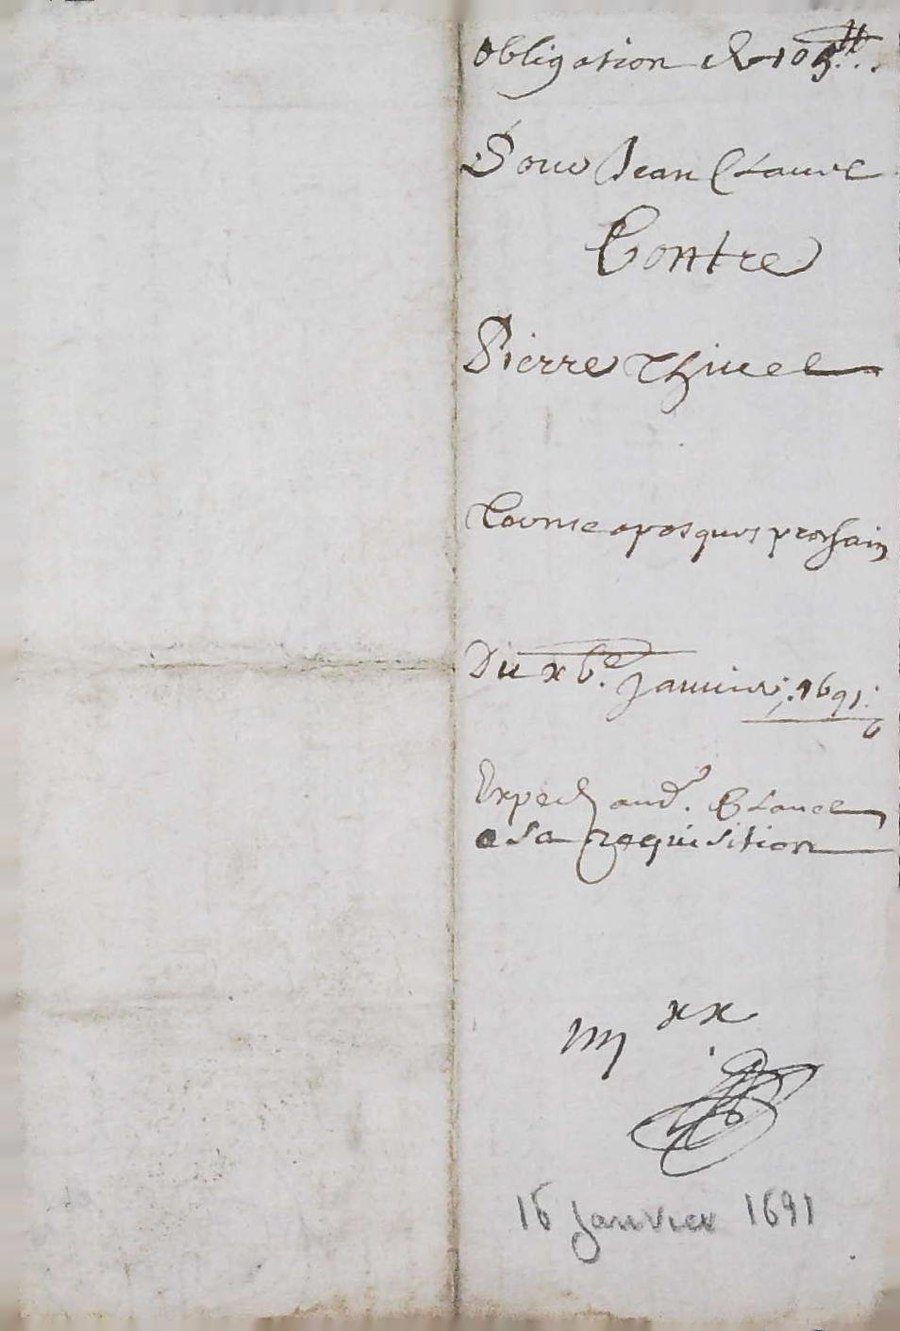 Obligation de 105 ll.
Pour Jean Clauel
Contre
Pierre Thiuel
a pasques prochain
Du xvi.e Januier 1691
Exped aud. Clauel
a sa requisition
xx
16 Janvier 1691